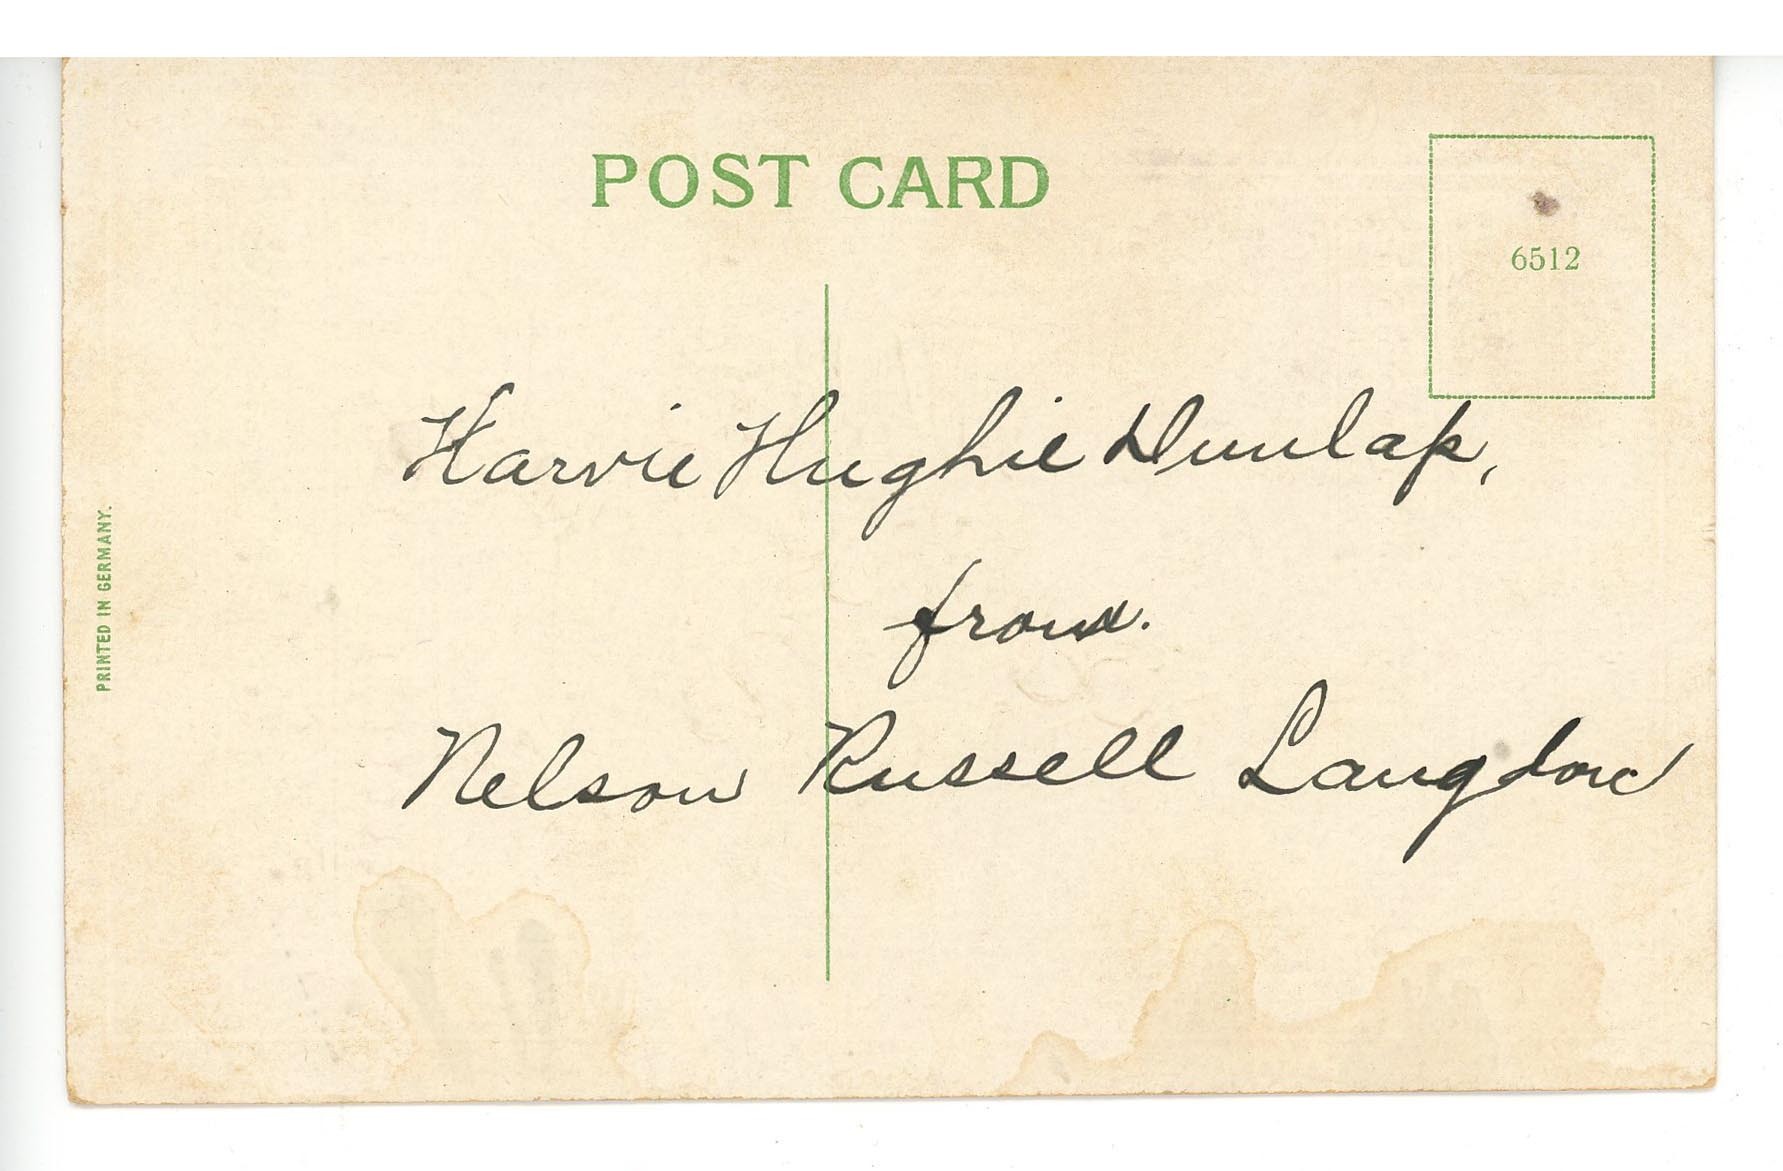 POST CARD
6512
Harvie Hughie Dunlap,
from.
Nelson Russell Langdon
PRINTED IN GERMANY.